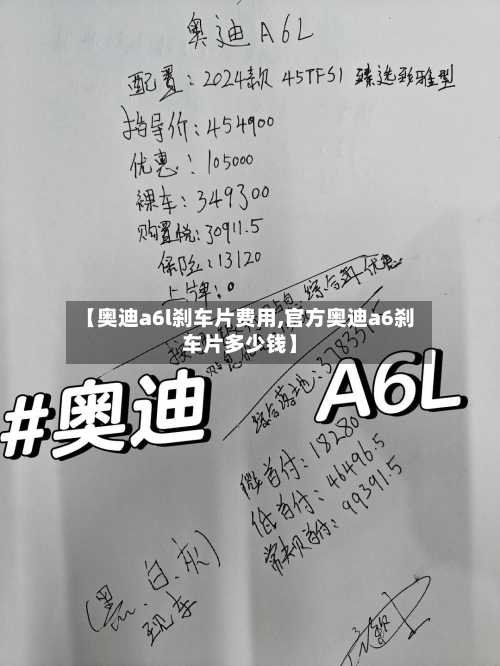 奥迪A6L
配置：2024款 45TFSI 臻选致雅型
指导价：454900
优惠：105000
裸车：349300
购置税：30911.5
保险：13120
上牌：0
【奥迪a6l刹车片费用,官方奥迪a6刹
车片多少钱】
综合算优惠
综合落地：378331.5
#奥迪 A6L
微首付：18280
低首付：46496.5
常规首付：99391.5
(黑、白、灰)
现车